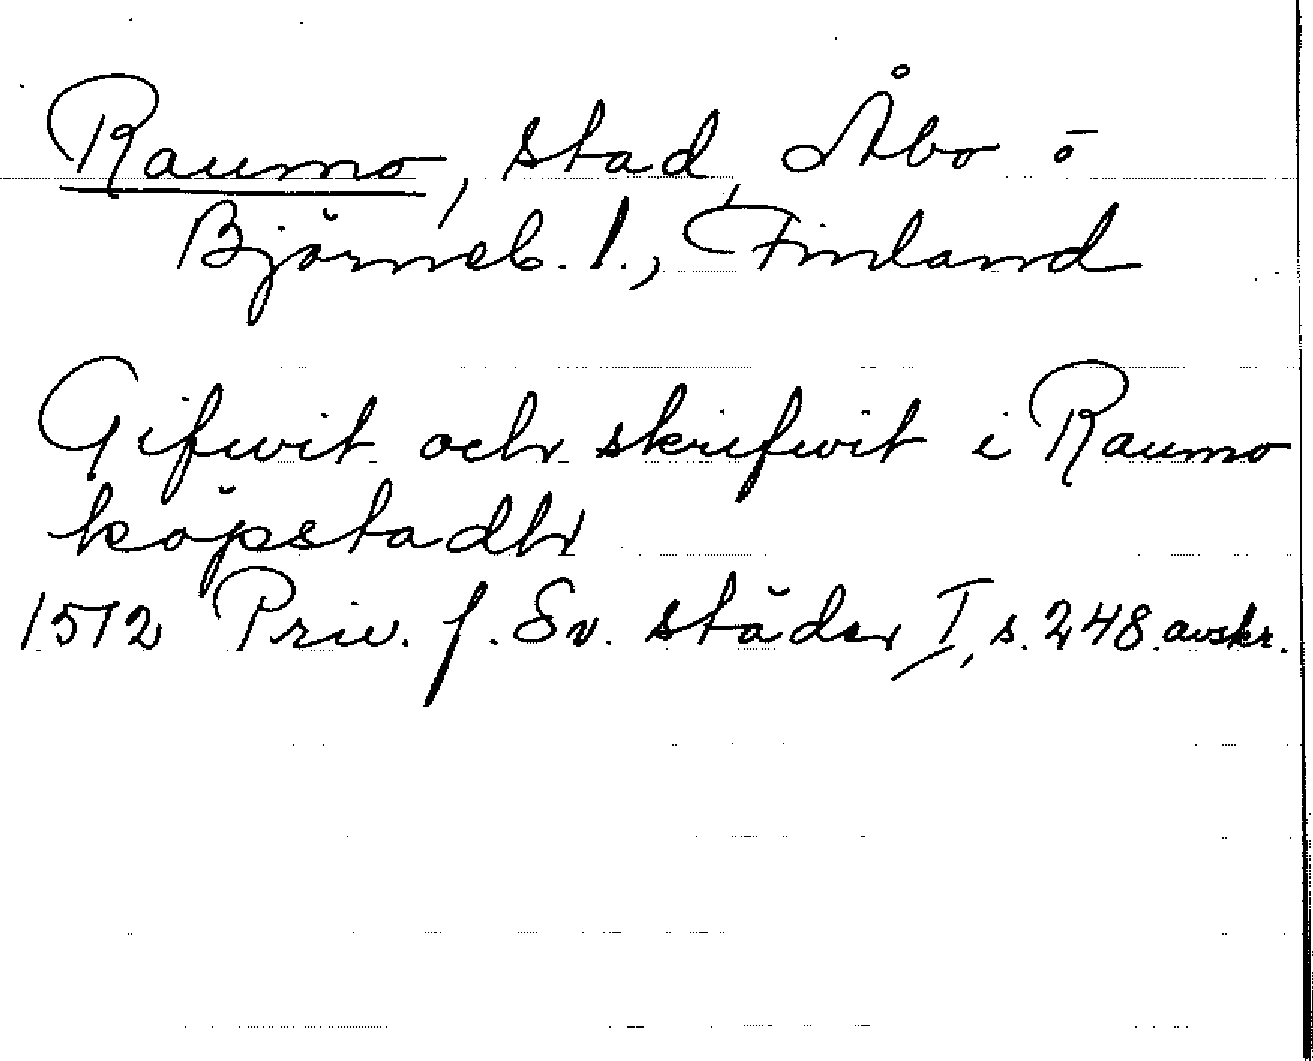 Raumo, stad, Åbo o
Björneb. l., Finland
Gifwit och skrifwit i Raumo
köpstadh
1572 Priv. f. Sv. städer I, s. 248 avskr.